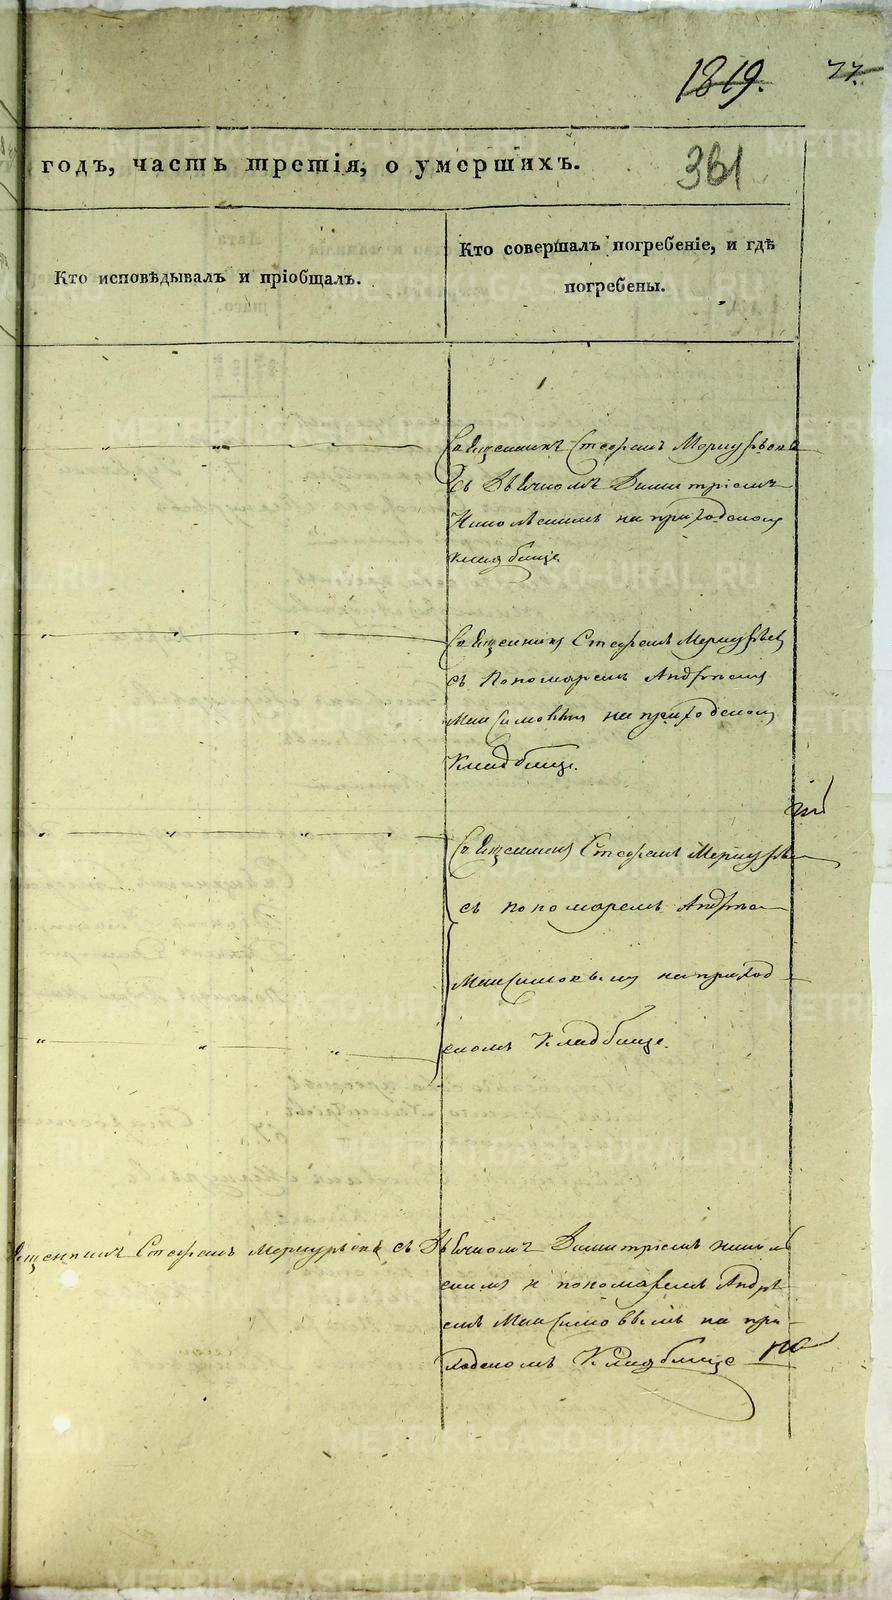 1819. 77.
годъ, часть третія, о умершихъ.
361
Кто исповѣдывалъ и пріобщалъ.
Кто совершалъ погребеніе, и гдѣ
погребены.
Священникъ Стефанъ Меркурьевъ
съ Дьячкомъ Димитріемъ
на приходскомъ
кладбище
Священникъ Стефанъ Меркурьевъ
съ Пономаремъ Андреемъ
Максимовымъ на приходскомъ
Кладбище.
Священникъ Стефанъ Меркурьев
съ пономаремъ Андрее
Максимовымъ на приход
скомъ Кладбище.
Стефанъ Меркурьевъ съ Дьячкомъ Димитріемъ
и пономаремъ Андре
емъ Максимовымъ на при
ходскомъ Кладбище
METRIKI.GASO-URAL.RU